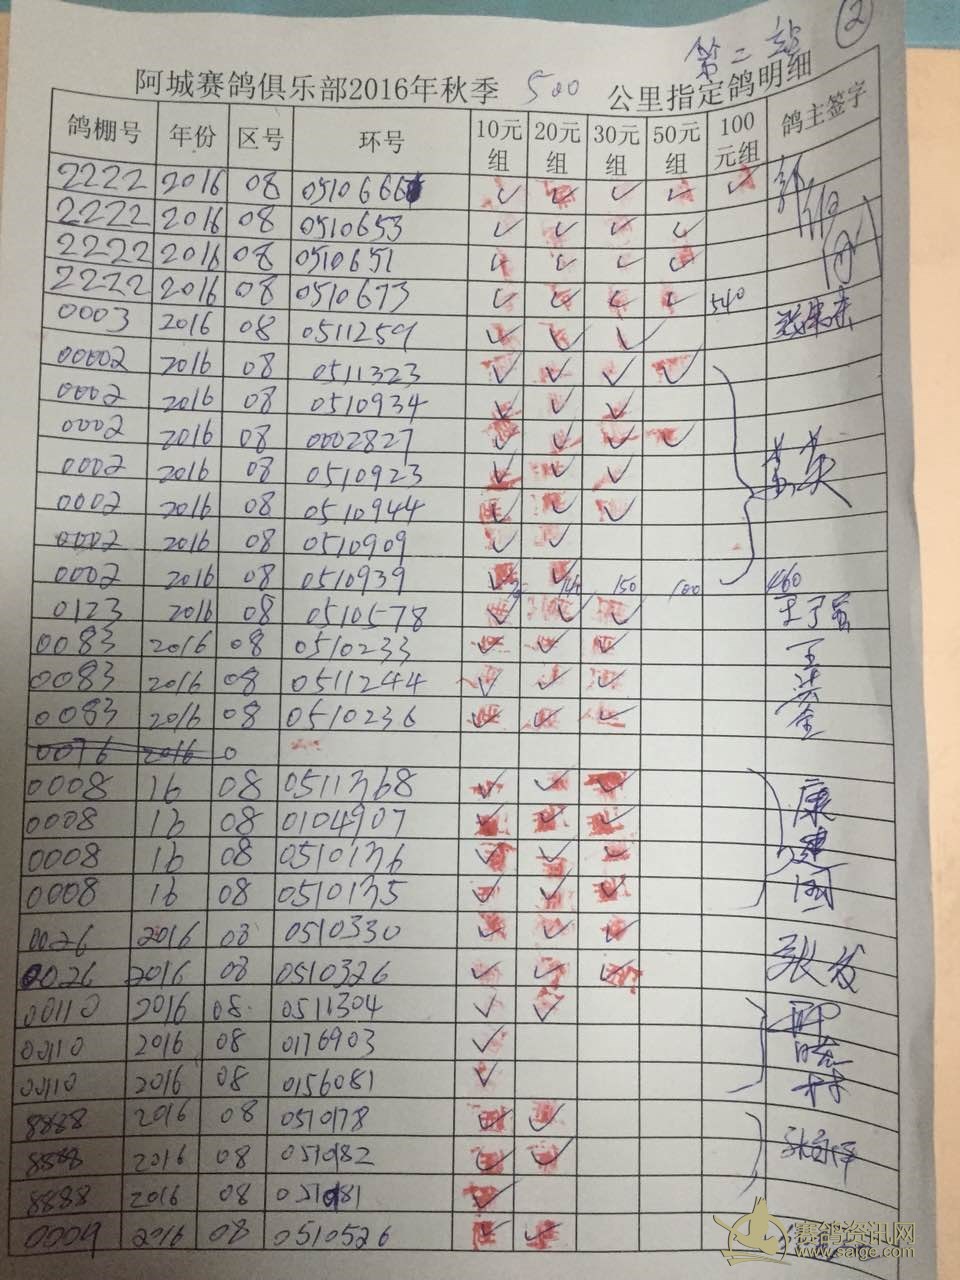 第二站 ②
阿城赛鸽俱乐部2016年秋季 500 公里指定鸽明细
鸽棚号 年份 区号 环号 10元组 20元组 30元组 50元组 100元组 鸽主签字
2222 2016 08 0510666 ✓ ✓ ✓ ✓ ✓
2222 2016 08 0510653 ✓ ✓ ✓ ✓
2222 2016 08 0510651 ✓ ✓ ✓ ✓
2222 2016 08 0510673 ✓ ✓ ✓ ✓ 540
0003 2016 08 0511259 ✓ ✓ ✓
00002 2016 08 0511323 ✓ ✓ ✓ ✓
0002 2016 08 0510934 ✓ ✓ ✓
0002 2016 08 0002827 ✓ ✓ ✓ ✓
0002 2016 08 0510923 ✓ ✓ ✓
0002 2016 08 0510944 ✓ ✓ ✓
0002 2016 08 0510909 ✓ ✓
0002 2016 08 0510939 ✓ ✓
140 150 100 460
0123 2016 08 0510578 ✓ ✓ ✓
0083 2016 08 0510233 ✓ ✓ ✓
0083 2016 08 0511244 ✓ ✓ ✓
0083 2016 08 0510236 ✓ ✓ ✓
0076 2016 0
0008 16 08 0511368 ✓ ✓ ✓
0008 16 08 0104907 ✓ ✓ ✓
0008 16 08 0510136 ✓ ✓ ✓ 康建国
0008 16 08 0510135 ✓ ✓ ✓
0026 2016 08 0510330 ✓ ✓ ✓
0026 2016 08 0510326 ✓ ✓ ✓ 张发
00110 2016 08 0511304 ✓ ✓
00110 2016 08 0176903 ✓
00110 2016 08 0156081 ✓
8888 2016 08 0510178 ✓ ✓
8888 2016 08 051082 ✓ ✓
8888 2016 08 051081 ✓
0009 2016 08 0510526 ✓ ✓
赛鸽资讯网
www.saige.com